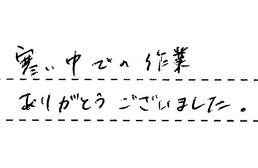 寒い中での作業
ありがとうございました。